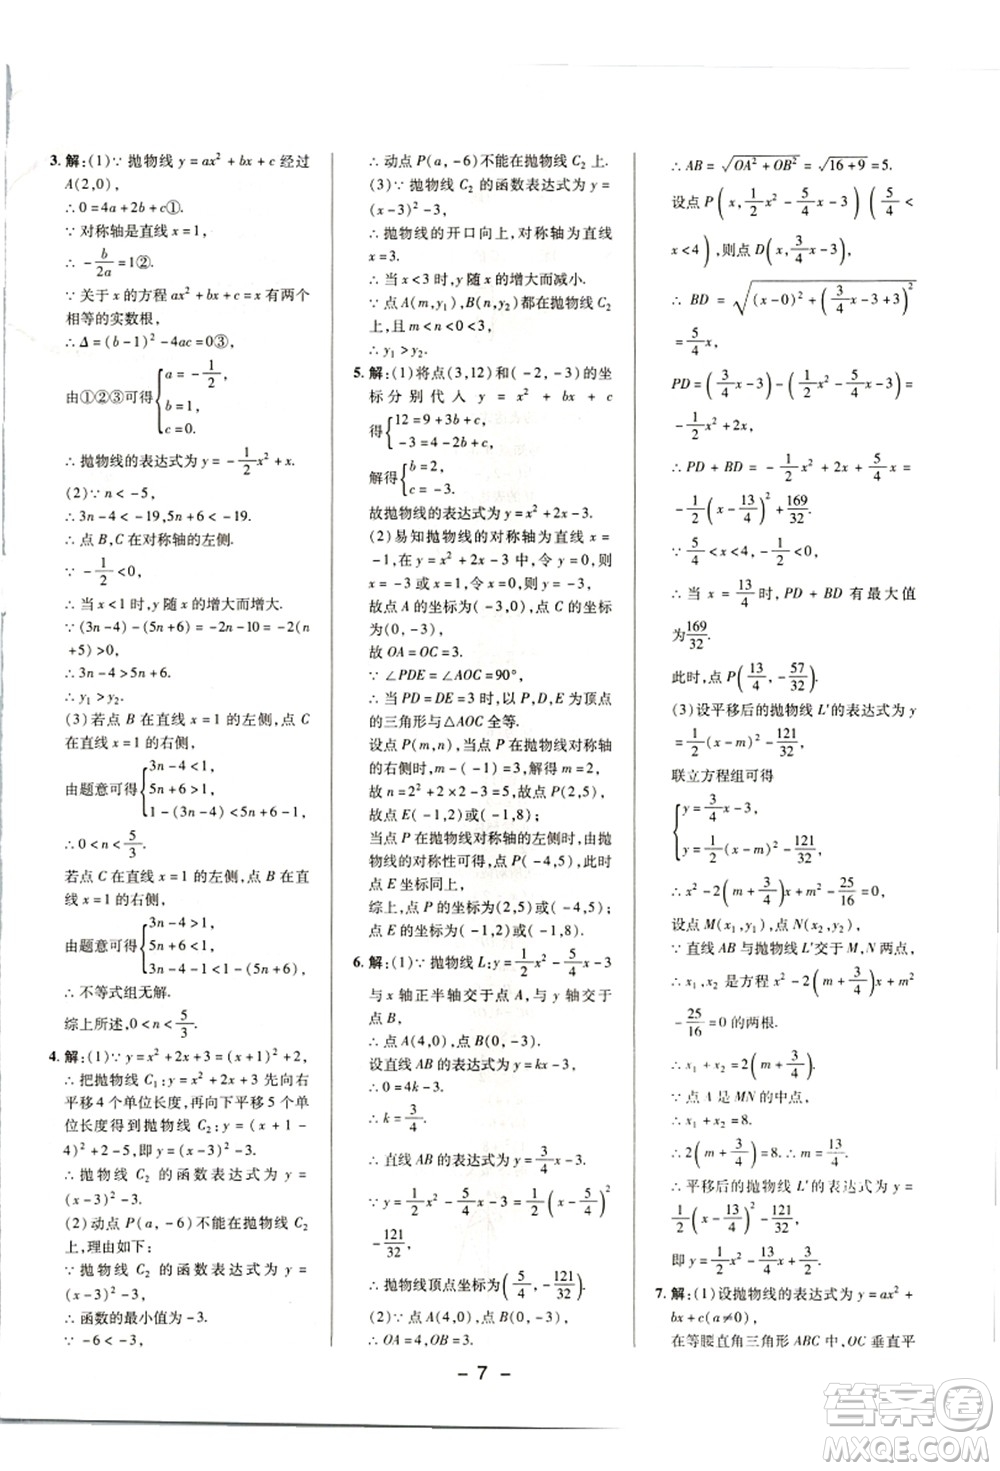 3. 解:(1)∵ 抛物线 y=ax²+bx+c 经过
A(2,0),
∴ 0=4a+2b+c①.
∵ 对称轴是直线 x=1,
∴ -b/2a=1②.
∵ 关于 x 的方程 ax²+bx+c=x 有两个
相等的实数根,
∴ Δ=(b-1)²-4ac=0③,
由①②③可得{a=-1/2,
b=1,
c=0.
∴ 抛物线的表达式为 y=-1/2x²+x.
(2)∵ n<-5,
∴ 3n-4<-19,5n+6<-19.
∴ 点 B,C 在对称轴的左侧.
∵ -1/2<0,
∴ 当 x<1 时,y 随 x 的增大而增大.
∵ (3n-4)-(5n+6)=-2n-10=-2(n
+5)>0,
∴ 3n-4>5n+6.
∴ y₁>y₂.
(3)若点 B 在直线 x=1 的左侧,点 C
在直线 x=1 的右侧,
由题意可得{3n-4<1,
5n+6>1,
1-(3n-4)<5n+6-1,
∴ 0<n<5/3.
若点 C 在直线 x=1 的左侧,点 B 在直
线 x=1 的右侧,
由题意可得{3n-4>1,
5n+6<1,
3n-4-1<1-(5n+6),
∴ 不等式组无解.
综上所述,0<n<5/3.
4. 解:(1)∵ y=x²+2x+3=(x+1)²+2,
∴ 把抛物线 C₁:y=x²+2x+3 先向右
平移 4 个单位长度,再向下平移 5 个单
位长度得到抛物线 C₂:y=(x+1-
4)²+2-5,即 y=(x-3)²-3.
∴ 抛物线 C₂ 的函数表达式为 y=
(x-3)²-3.
(2)动点 P(a,-6)不能在抛物线 C₂
上,理由如下:
∵ 抛物线 C₂ 的函数表达式为 y=
(x-3)²-3,
∴ 函数的最小值为-3.
∵ -6<-3,
∴ 动点 P(a,-6)不能在抛物线 C₂ 上.
(3)∵ 抛物线 C₂ 的函数表达式为 y=
(x-3)²-3,
∴ 抛物线的开口向上,对称轴为直线
x=3.
∴ 当 x<3 时,y 随 x 的增大而减小.
∵ 点 A(m,y₁),B(n,y₂)都在抛物线 C₂
上,且 m<n<3,
∴ y₁>y₂.
5. 解:(1)将点(3,12)和(-2,-3)的坐
标分别代入 y=x²+bx+c,
得{12=9+3b+c,
-3=4-2b+c,
解得{b=2,
c=-3.
故抛物线的表达式为 y=x²+2x-3.
(2)易知抛物线的对称轴为直线 x=
-1,在 y=x²+2x-3 中,令 y=0,则 x=
-3 或 x=1,令 x=0,则 y=-3,
故点 A 的坐标为(-3,0),点 C 的坐标
为(0,-3),
故 OA=OC=3.
∵ ∠PDE=∠AOC=90°,
∴ 当 PD=DE=3 时,以 P,D,E 为顶点
的三角形与△AOC 全等.
设点 P(m,n),当点 P 在抛物线对称轴
的右侧时,m-(-1)=3,解得 m=2,
故 n=2²+2×2-3=5,故点 P(2,5),
故点 E(-1,2)或(-1,8);
当点 P 在抛物线对称轴的左侧时,由抛
物线的对称性可得,点 P(-4,5),此时
点 E 坐标同上,
综上,点 P 的坐标为(2,5)或(-4,5),
点 E 的坐标为(-1,2)或(-1,8).
6. 解:(1)∵ 抛物线 L:y=1/2x²-5/4x-3
与 x 轴正半轴交于点 A,与 y 轴交于
点 B,
∴ 点 A(4,0),点 B(0,-3).
设直线 AB 的表达式为 y=kx-3,
∴ 0=4k-3.
∴ k=3/4.
∴ 直线 AB 的表达式为 y=3/4x-3.
∵ y=1/2x²-5/4x-3=1/2(x-5/4)²-
121/32,
∴ 抛物线顶点坐标为(5/4,-121/32).
(2)∵ 点 A(4,0),点 B(0,-3),
∴ OA=4,OB=3.
∴ AB=√(OA²+OB²)=√(16+9)=5.
设点 P(x,1/2x²-5/4x-3)(5/4<
x<4),则点 D(x,3/4x-3),
∴ BD=√((x-0)²+(3/4x-3+3)²)
=5/4x,
PD=(3/4x-3)-(1/2x²-5/4x-3)=
-1/2x²+2x,
∴ PD+BD=-1/2x²+2x+5/4x=
-1/2(x-13/4)²+169/32.
∵ 5/4<x<4,-1/2<0,
∴ 当 x=13/4 时,PD+BD 有最大值
为169/32.
此时,点 P(13/4,-57/32).
(3)设平移后的抛物线 L′的表达式为 y
=1/2(x-m)²-121/32,
联立方程组可得
{y=3/4x-3,
y=1/2(x-m)²-121/32,
∴ x²-2(m+3/4)x+m²-25/16=0,
设点 M(x₁,y₁),点 N(x₂,y₂),
∵ 直线 AB 与抛物线 L′交于 M,N 两点,
∴ x₁,x₂ 是方程 x²-2(m+3/4)x+m²
-25/16=0 的两根.
∴ x₁+x₂=2(m+3/4).
∵ 点 A 是 MN 的中点,
∴ x₁+x₂=8.
∴ 2(m+3/4)=8.∴ m=13/4.
∴ 平移后的抛物线 L′的表达式为 y=
1/2(x-13/4)²-121/32,
即 y=1/2x²-13/4x+3/2.
7. 解:(1)设抛物线的表达式为 y=ax²+
bx+c(a≠0),
在等腰直角三角形 ABC 中,OC 垂直平
- 7 -
答案圈
MXQE.COM